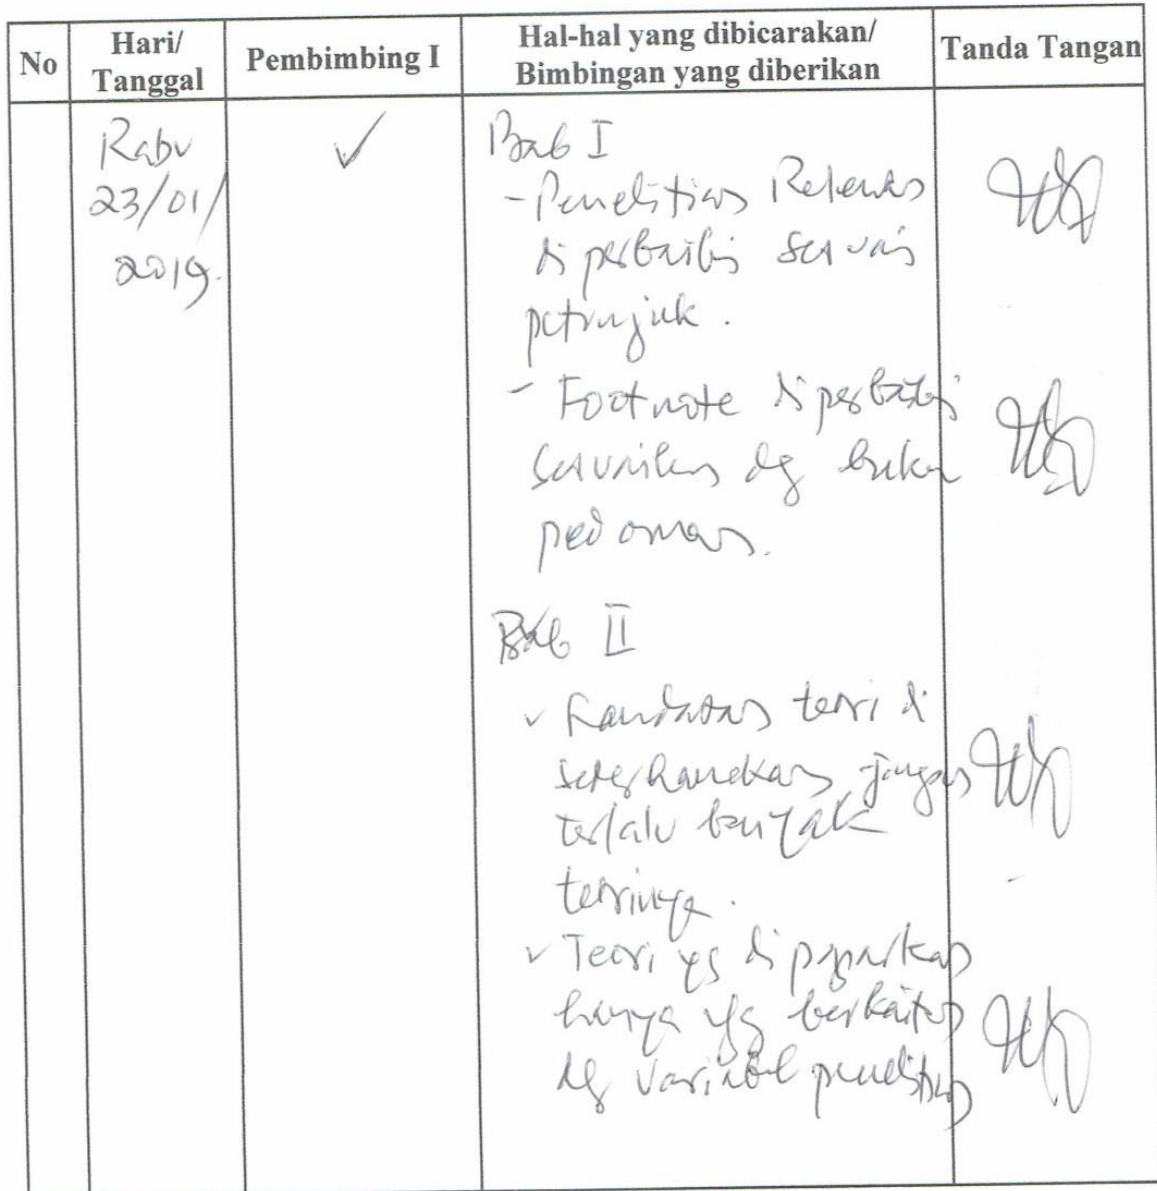 No
Hari/
Tanggal
Pembimbing I
Hal-hal yang dibicarakan/
Bimbingan yang diberikan
Tanda Tangan
Rabu
23/01/
2019.
✓
Bab I
- Penelitian Relevan
diperbaiki sesuai
petunjuk.
- Footnote diperbaiki
sesuaikan dg buku
pedoman.
Bab II
✓ Landasan teori di
sederhanakan jangan
terlalu banyak
teorinya.
✓ Teori yg dipaparkan
hanya yg berkaitan
dg variabel penelitian